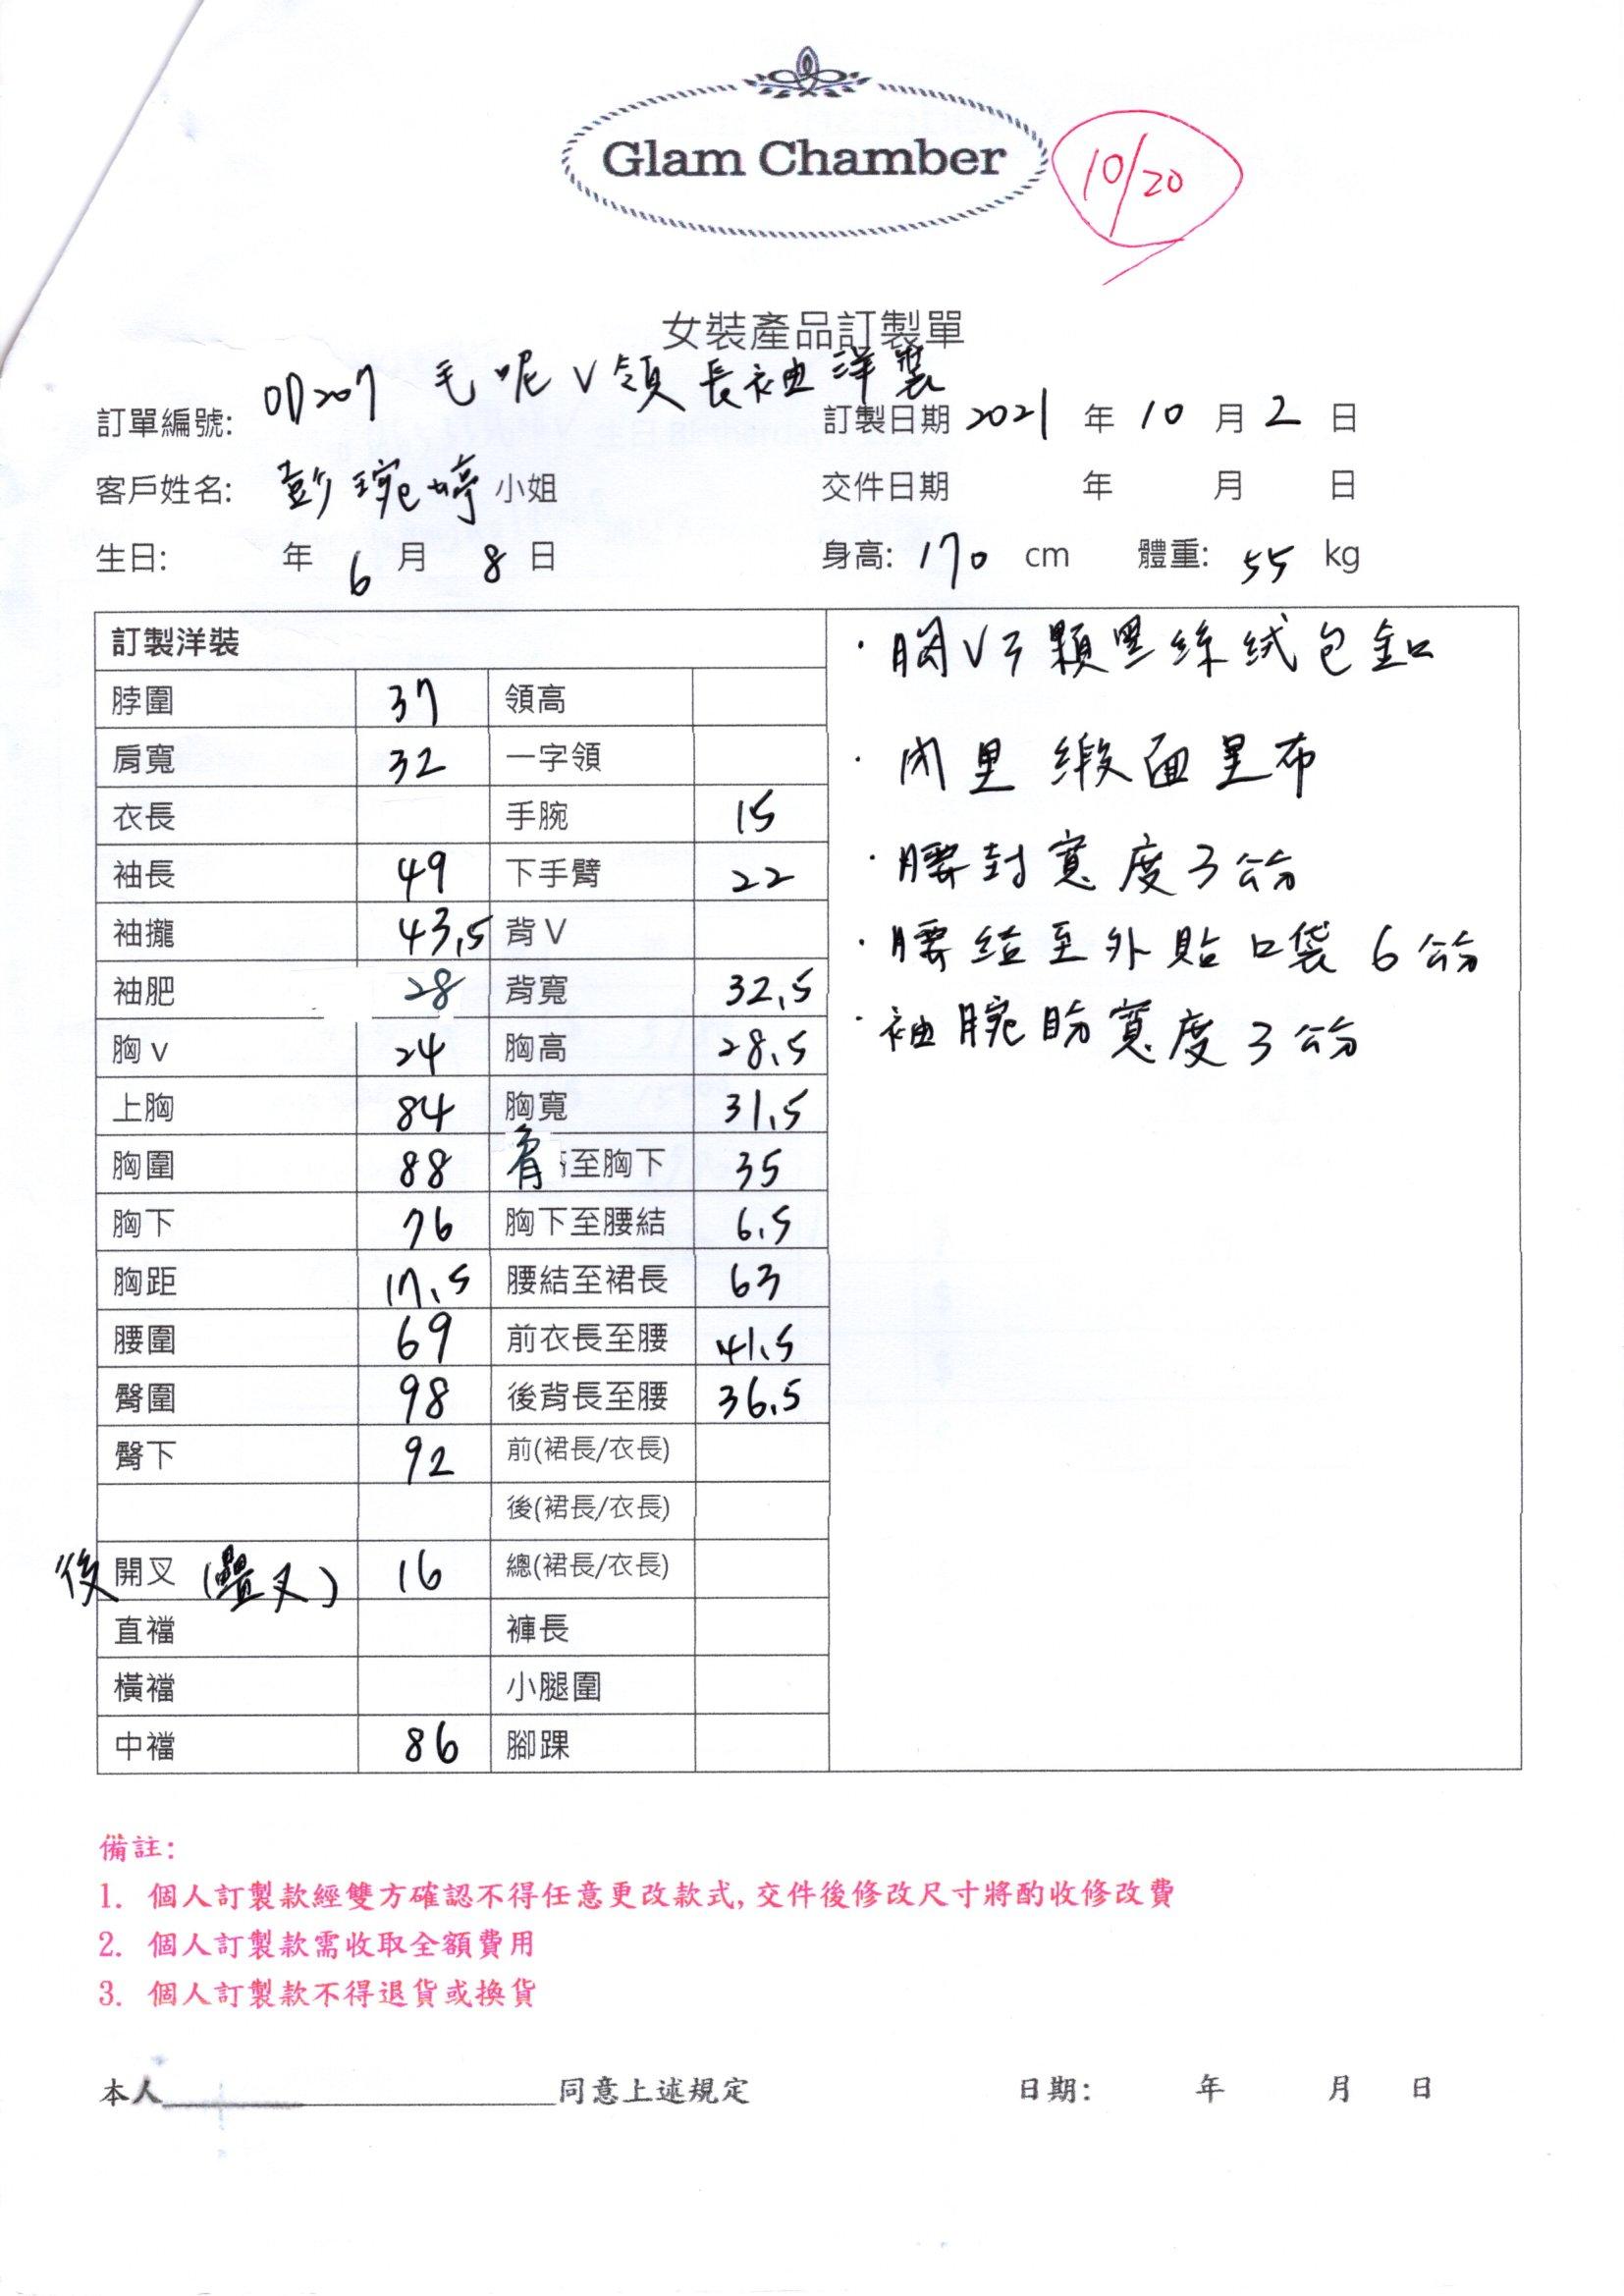 Glam Chamber
10/20
女裝產品訂製單
訂單編號: OD207 毛呢V領長袖洋裝 訂製日期 2021 年 10 月 2 日
客戶姓名: 彭琬婷 小姐 交件日期 年 月 日
生日: 年 6 月 8 日 身高: 170 cm 體重: 55 kg
訂製洋裝
脖圍 37 領高
肩寬 32 一字領
衣長 手腕 15
袖長 49 下手臂 22
袖攏 43.5 背V
袖肥 28 背寬 32.5
胸v 24 胸高 28.5
上胸 84 胸寬 31.5
胸圍 88 肩至胸下 35
胸下 76 胸下至腰結 6.5
胸距 17.5 腰結至裙長 63
腰圍 69 前衣長至腰 41.5
臀圍 98 後背長至腰 36.5
臀下 92 前(裙長/衣長)
後(裙長/衣長)
後開叉(疊叉) 16 總(裙長/衣長)
直襠 褲長
橫襠 小腿圍
中襠 86 腳踝
·胸V3顆黑絲絨包釦
·內里緞面里布
·腰封寬度3公分
·腰結至外貼口袋6公分
·袖腕 寬度3公分
備註:
1. 個人訂製款經雙方確認不得任意更改款式,交件後修改尺寸將酌收修改費
2. 個人訂製款需收取全額費用
3. 個人訂製款不得退貨或換貨
本人 同意上述規定 日期: 年 月 日